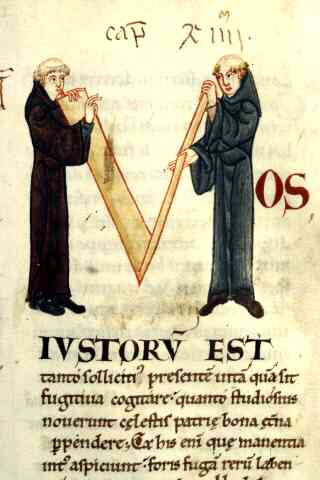 cap̄ xiiii.
MOS
IVSTORV̄ EST
tanto sollicitiꝰ presentē uitā quā sit
fugitiua cogitare. quanto studiosius
nouerunt cęlestis patrię bona ęt̄na
ꝑpendere. Ex his enī quę manentia
intꝰ aspiciunt. foris fugā rerū laben